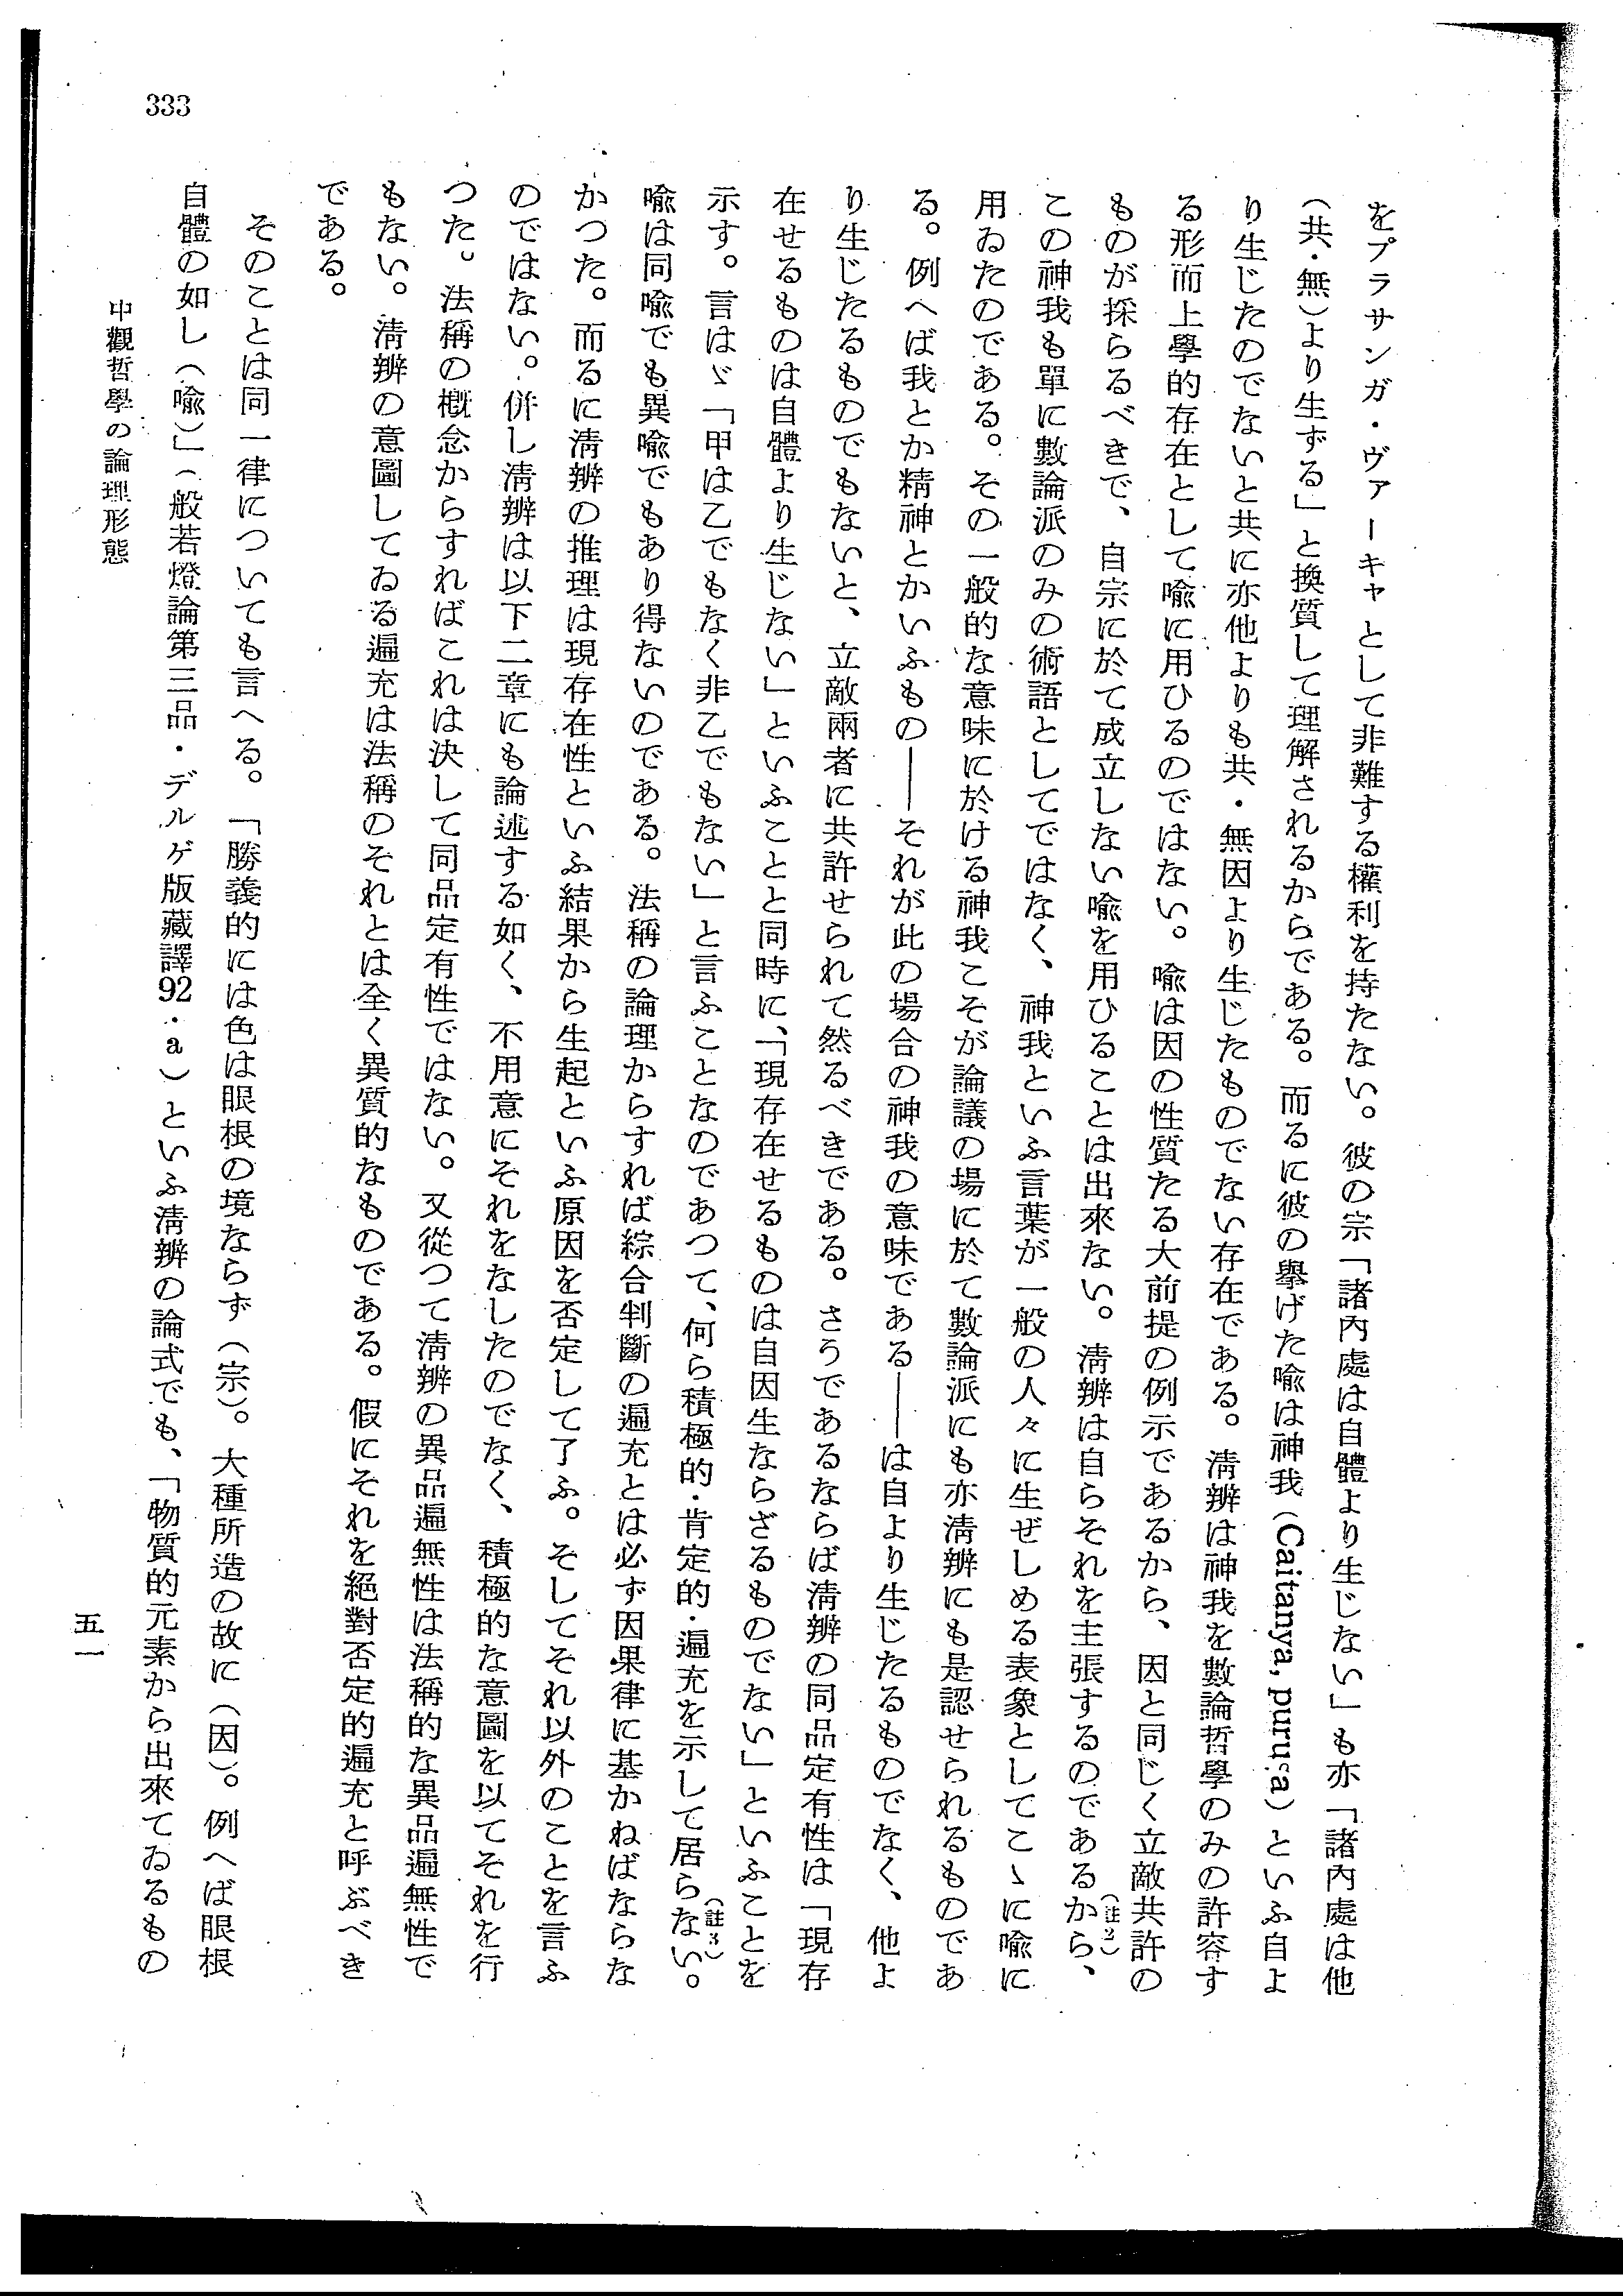 333
をプラサンガ・ヴァーキャとして非難する權利を持たない。彼の宗「諸內處は自體より生じない」も亦「諸內處は他
（共・無）より生ずる」と換質して理解されるからである。而るに彼の擧げた喩は神我（Caitanya, puruṣa）といふ自よ
り生じたのでないと共に亦他よりも共・無因より生じたものでない存在である。淸辨は神我を數論哲學のみの許容す
る形而上學的存在として喩に用ひるのではない。喩は因の性質たる大前提の例示であるから、因と同じく立敵共許の
ものが採らるべきで、自宗に於て成立しない喩を用ひることは出來ない。淸辨は自らそれを主張するのであるから、（註2）
この神我も單に數論派のみの術語としてではなく、神我といふ言葉が一般の人々に生ぜしめる表象としてこゝに喩に
用ゐたのである。その一般的な意味に於ける神我こそが論議の場に於て數論派にも亦淸辨にも是認せられるものであ
る。例へば我とか精神とかいふもの――それが此の場合の神我の意味である――は自より生じたるものでなく、他よ
り生じたるものでもないと、立敵兩者に共許せられて然るべきである。さうであるならば淸辨の同品定有性は「現存
在せるものは自體より生じない」といふことと同時に、「現存在せるものは自因生ならざるものでない」といふことを
示す。言はゞ「甲は乙でもなく非乙でもない」と言ふことなのであつて、何ら積極的・肯定的・遍充を示して居らない。（註3）
喩は同喩でも異喩でもあり得ないのである。法稱の論理からすれば綜合判斷の遍充とは必ず因果律に基かねばならな
かつた。而るに淸辨の推理は現存在性といふ結果から生起といふ原因を否定して了ふ。そしてそれ以外のことを言ふ
のではない。併し淸辨は以下二章にも論述する如く、不用意にそれをなしたのでなく、積極的な意圖を以てそれを行
つた。法稱の槪念からすればこれは決して同品定有性ではない。又從つて淸辨の異品遍無性は法稱的な異品遍無性で
もない。淸辨の意圖してゐる遍充は法稱のそれとは全く異質的なものである。假にそれを絕對否定的遍充と呼ぶべき
である。
そのことは同一律についても言へる。「勝義的には色は眼根の境ならず（宗）。大種所造の故に（因）。例へば眼根
自體の如し（喩）」（般若燈論第三品・デルゲ版藏譯92・a）といふ淸辨の論式でも、「物質的元素から出來てゐるもの
中觀哲學の論理形態
五一